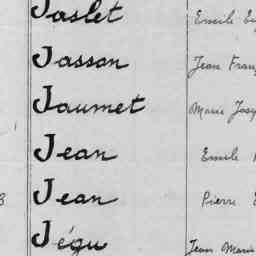 Jaslet Emile
Jasson Jean
Jaumet Marie
Jean Emile
Jean Pierre
Jégu Jean Marie